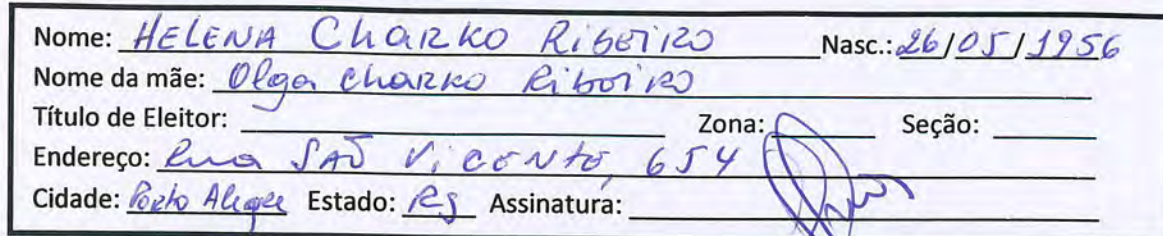 Nome: HELENA Charko Ribeiro Nasc.: 26/05/1956
Nome da mãe: Olga Charko Ribeiro
Título de Eleitor: Zona: Seção:
Endereço: Rua SAÕ VicENtE, 654
Cidade: Porto Alegre Estado: RS Assinatura: